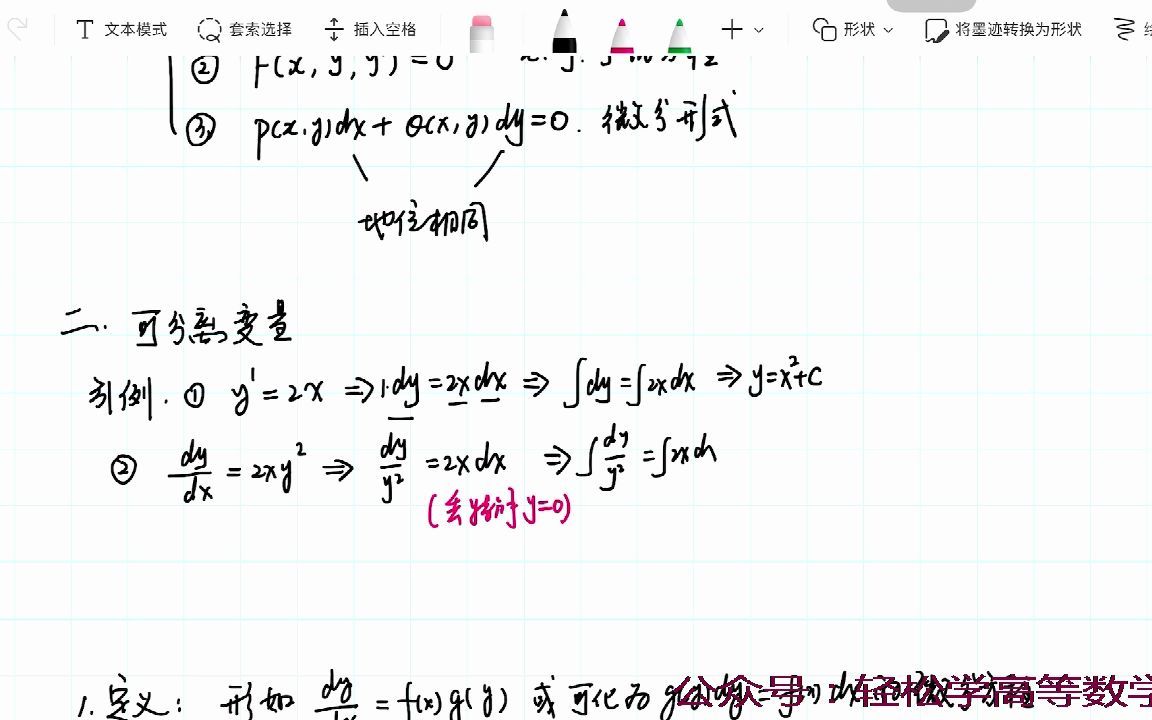 文本模式 套索选择 插入空格 形状 将墨迹转换为形状
② F(x, y, y') = 0
③ P(x,y)dx + Q(x,y)dy = 0. 微分形式
地位相同
二. 可分离变量
引例. ① y' = 2x ⇒ 1·dy = 2x dx ⇒ ∫dy = ∫2x dx ⇒ y = x²+C
② dy/dx = 2xy² ⇒ dy/y² = 2x dx ⇒ ∫dy/y² = ∫2x dx
y=0)
1. 定义: 形如 dy/dx = f(x)g(y) 或可化为
公众号:轻松学高等数学